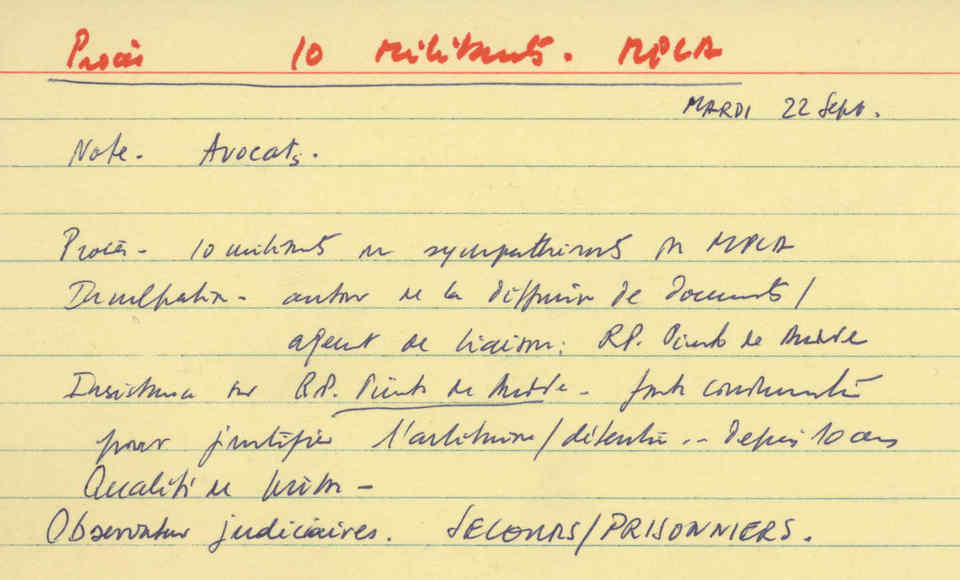 Procès 10 Militants. MPLA
MARDI 22 Sept.
Note. Avocats.
Procès - 10 militants ou sympathisants du MPLA
Inculpation - autour de la diffusion de documents /
agent de liaison: RP. Pinto de
Insistance sur R.P. Pinto de - forte
pour justifier l'arbitraire/détention .. depuis 10 ans
Qualité de
Observateurs judiciaires. SECOURS/PRISONNIERS.